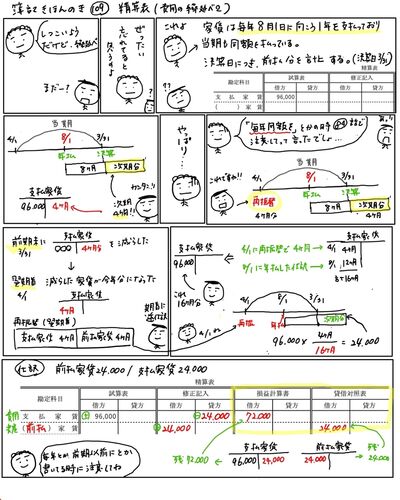 簿記きほんのき 109 精算表(費用の繰延べ2)
これよ
家賃は毎年8月1日に向こう1年を支払っており
当期も同額を払っている。
決算日につき、前払い分を計上する。(決算日3/31)
精算表
勘定科目 試算表 修正記入
借方 貸方 借方 貸方
支払家賃 96,000
( )家賃
ぜったい
忘れてると
思うせよ
しつこいよう
だけど、繰延べ
まだー?
「毎年同額を」とかの時
注意してって言ったでしょ…
これですね!!
当業期
4/1 8/1 3/31
年払い 決算
再振替 8ヶ月 次期分
4ヶ月
やっぱり…
当業期
4/1 8/1 3/31
年払い 決算
8ヶ月 次期分
支払家賃
96,000 4ヶ月
次期分
4ヶ月!!
カンタン!!
支払家賃
96,000
これ
16ヶ月分
4/1に再振替で4ヶ月→
8/1に年払した12ヶ月→
支払家賃
4/1 4ヶ月
8/1 12ヶ月
計16ヶ月
4/1 8/1 3/31
再振 年払 次期分
96,000 × 4ヶ月/16ヶ月 = 24,000
前期末に
3/31
支払家賃
○○○ 4ヶ月分
を減らした
翌期首
4/1
減らした家賃が今年分になった
支払家賃
4ヶ月
再振替(翌期首)
支払家賃 4ヶ月 前払家賃 4ヶ月
仕訳 前払家賃24,000 / 支払家賃24,000
精算表
勘定科目 試算表 修正記入 損益計算書 貸借対照表
借方 貸方 借方 貸方 借方 貸方 借方 貸方
費用 支払家賃 96,000 24,000 72,000
資産 (前払)家賃 24,000 24,000
毎年とか前期以前にとか
書いてる時に注意してね
残72,000
支払家賃
96,000 24,000
前払家賃
24,000
残24,000